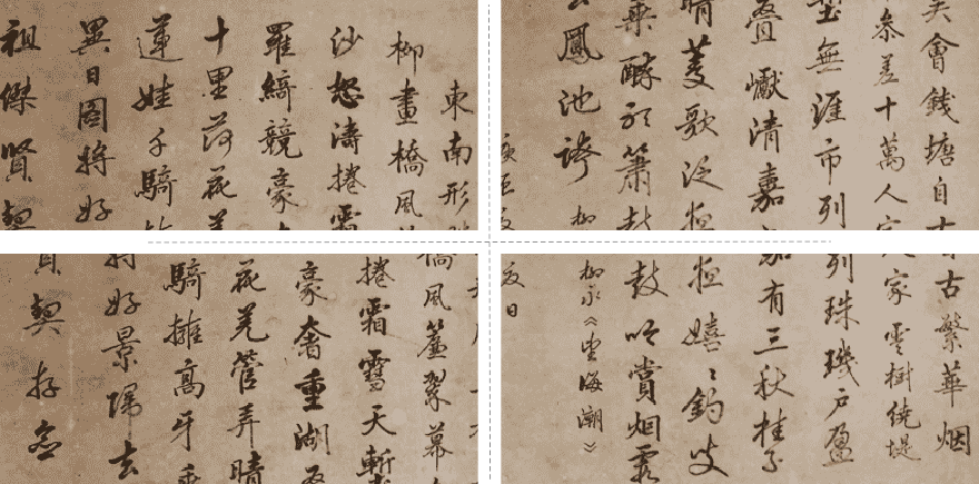 東南形
柳畫橋風
沙怒濤捲霜
羅綺競豪
十里荷花羌
蓮娃千騎
異日圖將好
祖傑賢契
會錢塘自古
參差十萬人家
塹無涯市列
疊巘清嘉
晴菱歌泛
乘醉聽簫鼓
去鳳池誇
柳
橋風簾翠幕
捲霜雪天塹
豪奢重湖
花羌管弄晴
騎擁高牙
將好景歸去
賢契存念
古繁華烟
人家雲樹繞堤
列珠璣戶盈
嘉有三秋桂子
嬉〻釣叟
鼓吟賞烟霞
柳永《望海潮》
日